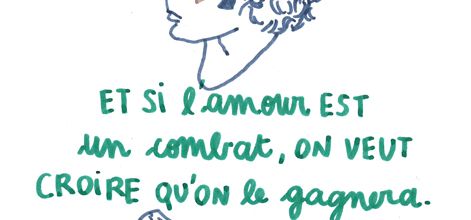 ET SI l'amour EST
un combat, ON VEUT
CROIRE QU'ON le gagnera.